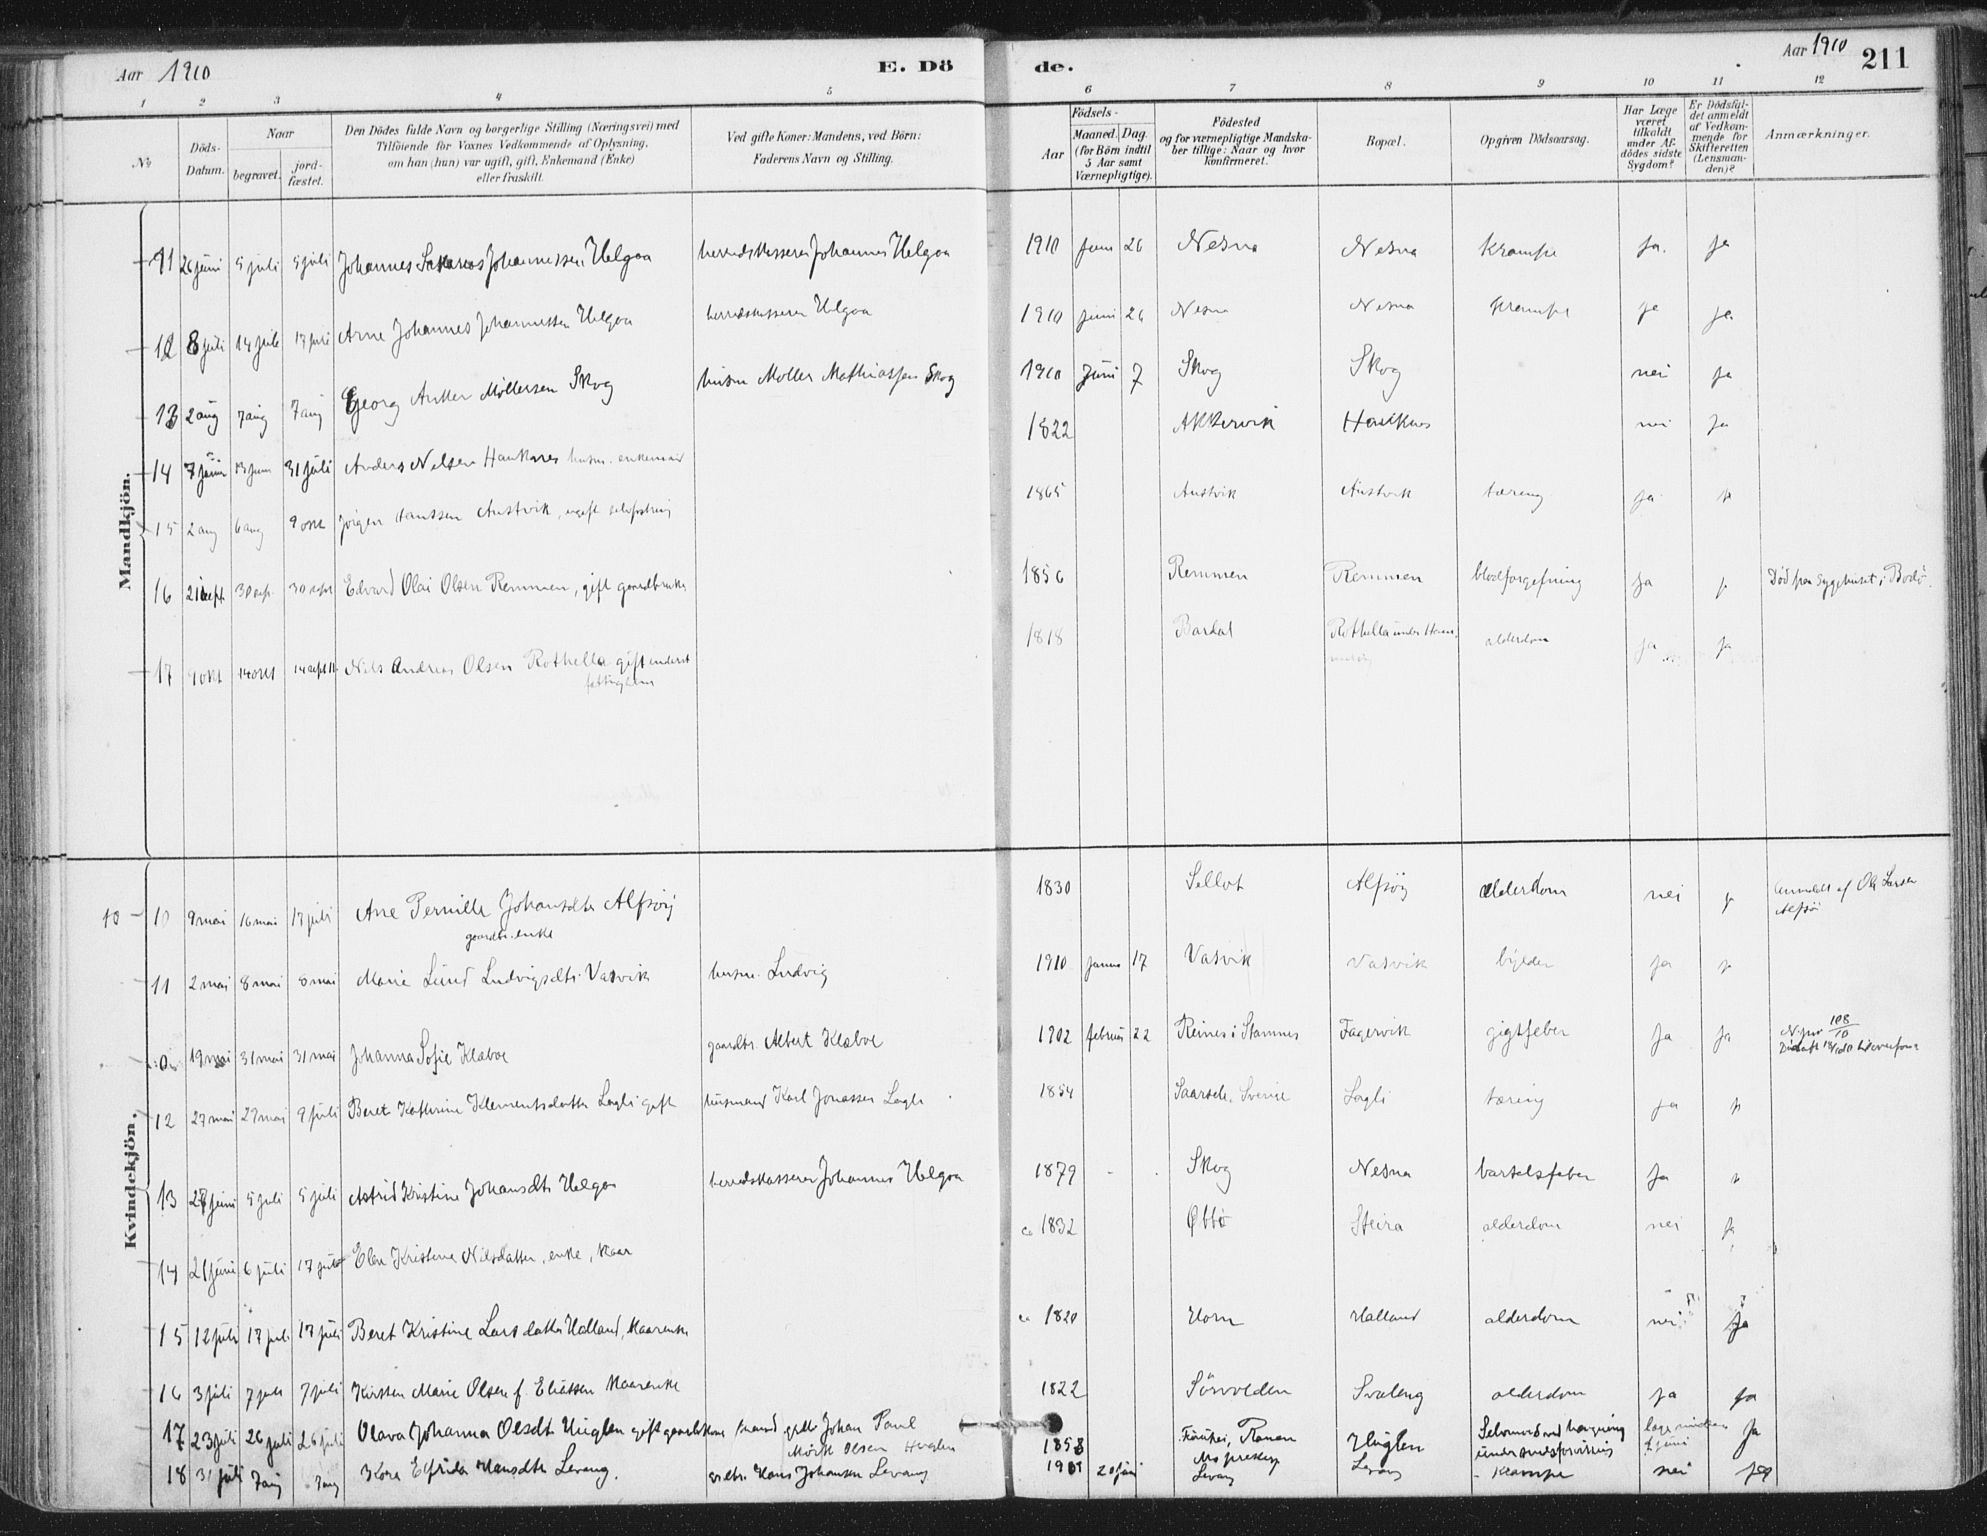 Aar 1910
E. Dö
de.
Aar 1910
211
1 2 3 4 5 6 7 8 9 10 11 12
№
Döds-
Datum.
Naar
begravet.
jord-
fæstet.
Den Dödes fulde Navn og borgerlige Stilling (Næringsvei) med
Tilföiende for Voxnes Vedkommende af Oplysning,
om han (hun) var ugift, gift, Enkemand (Enke)
eller fraskilt.
Ved gifte Koner: Mandens, ved Börn:
Faderens Navn og Stilling.
Födsels-
Aar
Maaned. Dag.
(for Börn indtil
5 Aar samt
Værnepligtige).
Födested
og for værnepligtige Mandska-
ber tillige: Naar og hvor
konfirmeret.
Bopæl.
Opgiven Dödsaarsag.
Har Læge
været
tilkaldt
under Af-
dödes sidste
Sygdom?
Er Dödsfal-
det anmeldt
af Vedkom-
mende for
Skifteretten
(Lensman-
den)?
Anmærkninger.
Mandkjön.
11 26 juni 5 juli 5 juli Johannes Johannessen Helgaa herredskasserer Johannes Helgaa 1910 Juni 26 Nesna Nesna Krampe ja. ja
12 8 juli 14 juli 17 juli Arne Johannes Johannessen Helgaa herredskasserer Helgaa 1910 juni 26 Nesna Nesna Krampe ja ja
13 2 aug 7 aug 7 aug Georg Möllersen Skog husm Möller Mathiassen Skog 1910 Juni 7 Skog Skog nei ja
14 7 juni 13 juni 31 juli Anders Nelsen Haukнes husm. enkemand 1822 Akkervik Hauknes nei ja
15 2 aug 6 aug 9 okt Jörgen Hanssen Austvik, ugift 1865 Austvik Austvik tæring ja ja
16 21 sept 30 sept. 30 sept Edvard Olai Olsen Remmen, gift gaardbruker 1856 Remmen Remmen blodforgiftning ja ja Död paa sygehuset i Bodö.
17 9 okt 14 okt 14 sept Nils Andreas Olsen Rothella gift inderst
fattiglem
1818 Bardal Rothella under alderdom ja ja
Kvindekjön.
10 10 9 mai 16 mai 17 juli Ane Pernille Johansdtr Alfsöy
gaardbr. enke
1830 Sellot Alfsöy alderdom nei ja Anmeldt af Ole Larsen
Alfsöi
11 2 mai 8 mai 8 mai Marie Lund Ludvigsdtr. Vasvik husm. Ludvig 1910 Januar 17 Vasvik Vasvik bylder ja ja
19 mai 31 mai 31 mai Johanna Sofie Klæboe gaardbr. Albert Klæboe 1902 februar 22 Reines i Stamnes Fagervik gigtfeber ja ja
12 27 mai 29 mai 9 juli Beret Kathrine Klementsdatter Lagli gift husmand Karl Jonassen Lagli 1854 Sverige Lagli tæring ja ja
13 28 juni 5 juli 5 juli Astrid Kristine Johansdtr Helgaa herredskasserer Johannes Helgaa 1879 Skog Nesna barselsfeber ja ja
14 21 juni 6 juli 17 juli Elen Kristine Nilsdatter, enke, kaar ca 1832 Steira alderdom nei ja
15 12 juli 17 juli 17 juli Beret Kristine Larsdatter Halland, kaarenke ca 1820 Horn Halland alderdom nei ja
16 3 juli 7 juli 7 juli Kirsten Marie Olsen f. Eliassen kaarenke 1822 Sörvolden Svaleng alderdom ja ja
17 23 juli 26 juli 26 juli Olava Johanna Olsdtr Huglen gift gaardbr Johan Paul
Mörk Olsen Huglen
1858 Ranen Huglen Selvmord ved hængning ja
18 31 juli 7 aug 7 aug Kora Elfrida Hansdtr Levang. Hans Johansen Levang 20 juni Levang Levang Krampe nei ja